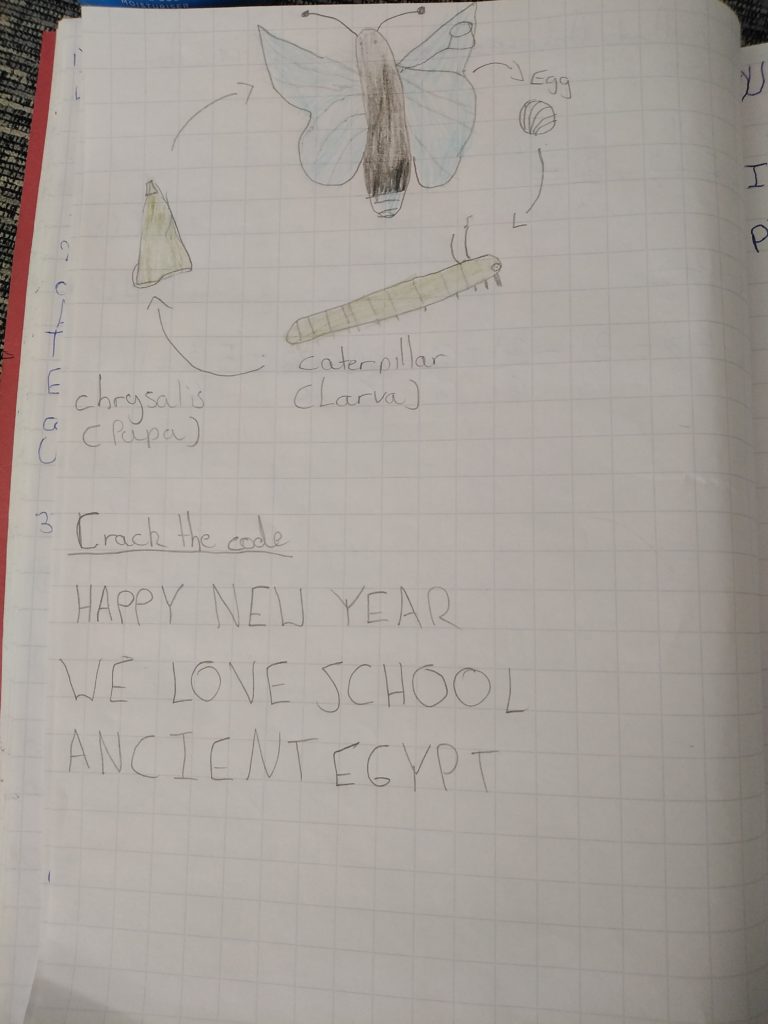 MOISTURISER
Egg
caterpillar
(Larva)
chrysalis
(Pupa)
3 Crack the code
HAPPY NEW YEAR
WE LOVE SCHOOL
ANCIENT EGYPT